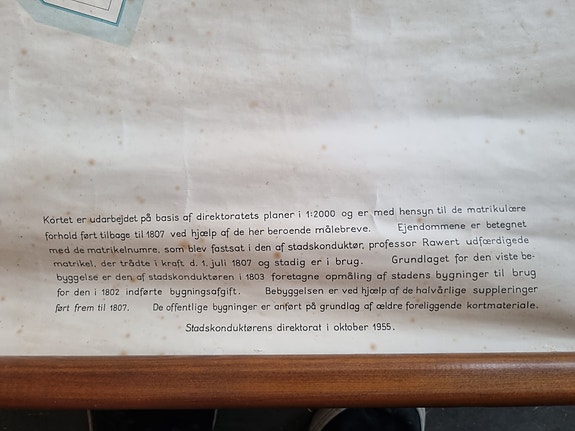 Kortet er udarbejdet på basis af direktoratets planer i 1:2000 og er med hensyn til de matrikulære
forhold ført tilbage til 1807 ved hjælp af de her beroende målebreve. Ejendommene er betegnet
med de matrikelnumre, som blev fastsat i den af stadskonduktør, professor Rawert udfærdigede
matrikel, der trådte i kraft d. 1. juli 1807 og stadig er i brug. Grundlaget for den viste be-
byggelse er den af stadskonduktøren i 1803 foretagne opmåling af stadens bygninger til brug
for den i 1802 indførte bygningsafgift. Bebyggelsen er ved hjælp af de halvårlige suppleringer
ført frem til 1807. De offentlige bygninger er anført på grundlag af ældre foreliggende kortmateriale.
Stadskonduktørens direktorat i oktober 1955.